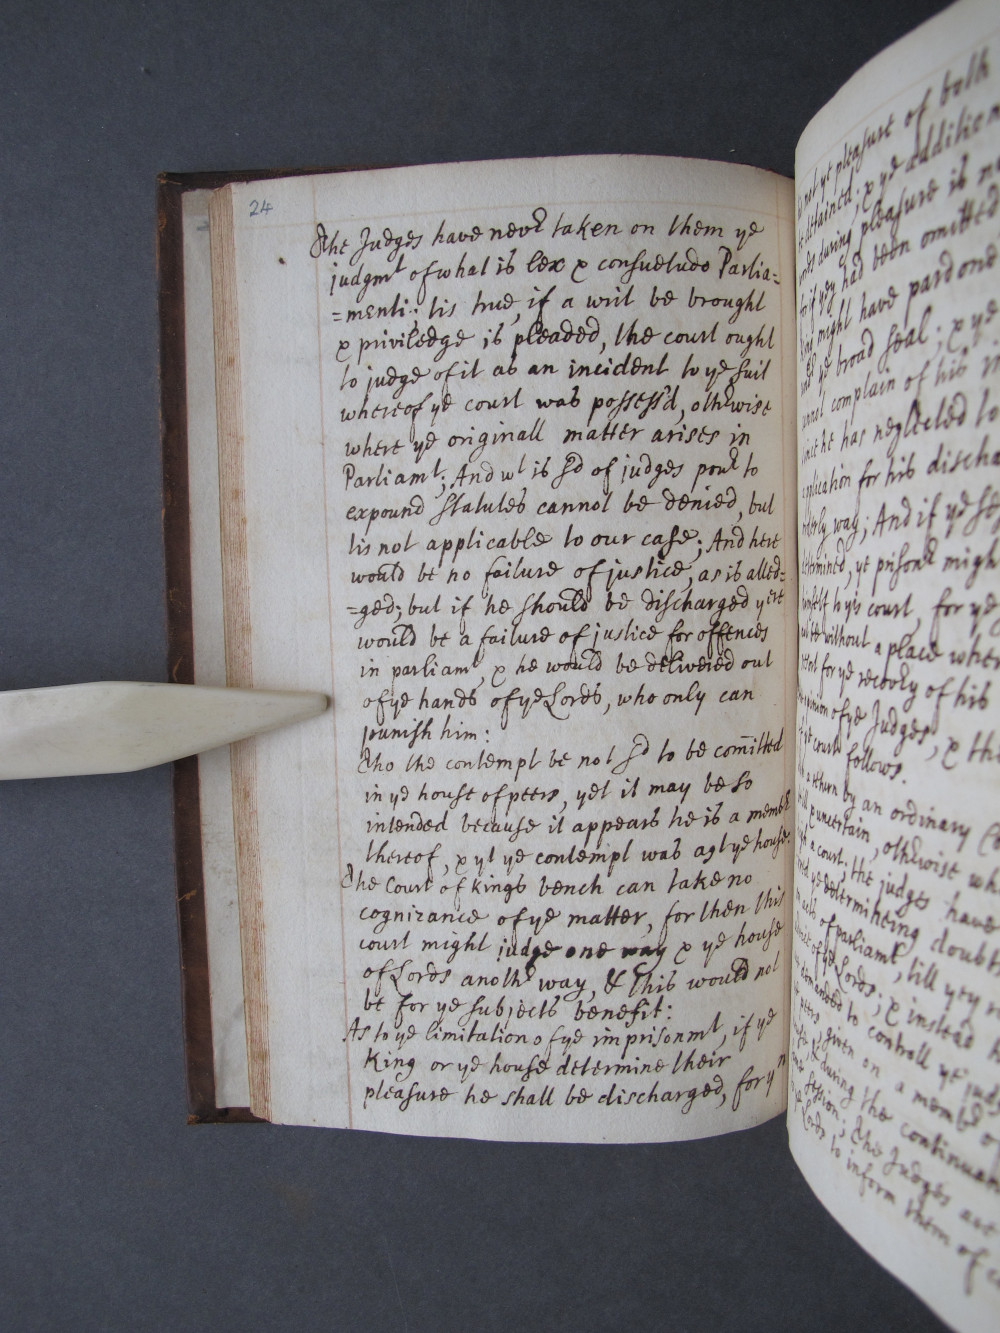 24
The Judges have nevr taken on them ye
judgmt of what is lex & consuetudo Parlia=
=menti: tis true, if a writ be brought
& priviledge is pleaded, the court ought
to judge of it as an incident to ye suit
whereof ye court was possess'd, othrwise
where ye originall matter arises in
Parliamt; And wt is sd of judges powr to
expound statutes cannot be denied, but
tis not applicable to our case; And here
would be no failure of justice, as is alled=
=ged; but if he should be discharged yere
would be a failure of justice for offences
in parliamt, & he would be delivered out
of ye hands of ye Lords, who only can
punish him:
Tho the contempt be not sd to be comitted
in ye house of peers, yet it may be so
intended because it appears he is a membr
thereof, & yt ye contempt was agt ye house.
The Court of kings bench can take no
cognizance of ye matter, for then this
court might judge one way & ye house
of Lords anothr way, & this would not
be for ye subjects benefit:
As to ye limitation of ye imprisonmt, if ye
King or ye house determine their
pleasure he shall be discharged, for yn
not yt pleasure of both
detained; & ye addition
during pleasure is
if yey had been omitted
might have pardond
ye broad seal; & ye
complain of his
he has neglected to
for his discha
way; And if ye se
ye prisonr migh
court, for ye
without a place wher
for ye recovry of his
of ye Judges, & th
follows.
return by an ordinary
uncertain, othrwise wh
a court; the judges have
ye determineing doubt
of parliamt, till yey
of ye Lords; & instead
demanded to controll ye judg
given on a membr
during the continuan
session; The Judges are
Lords to inform them of